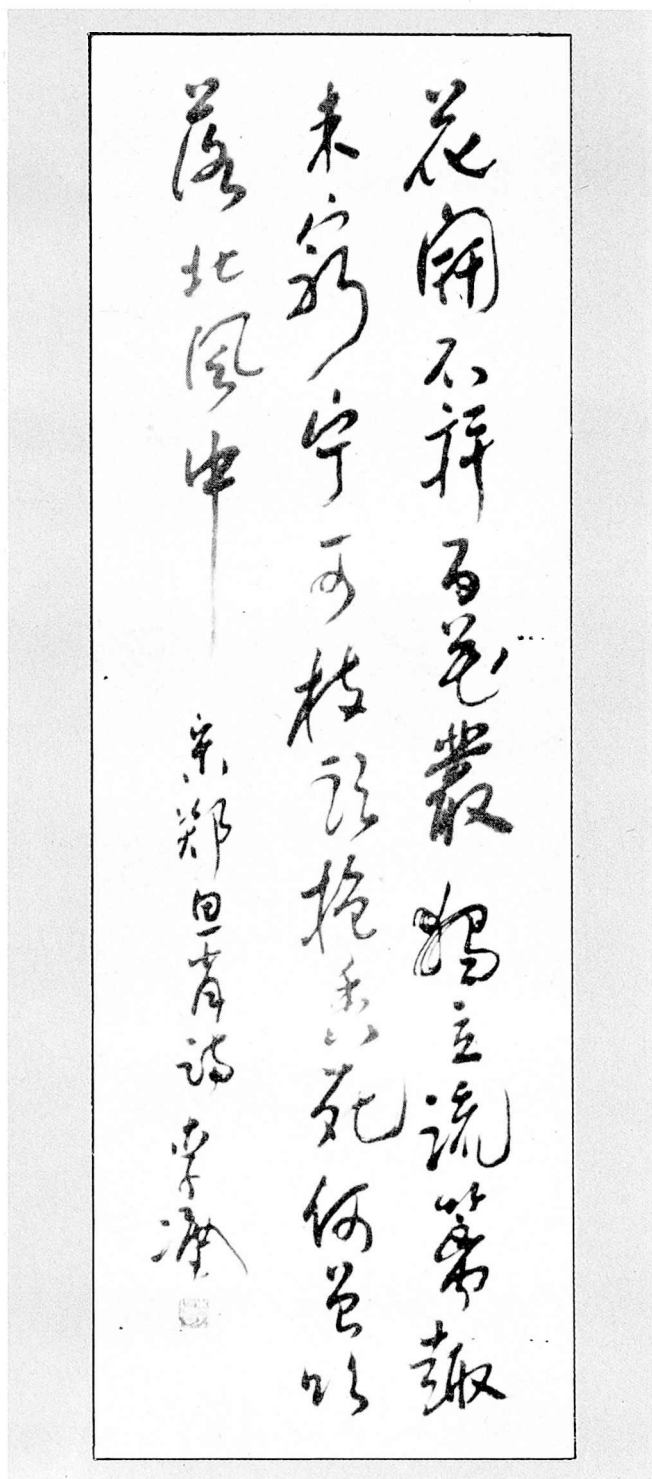 花開不併百花叢獨立疏篱趣
未窮宁可枝頭抱香死何曾吹
落北風中
宋鄭思肖詩 李